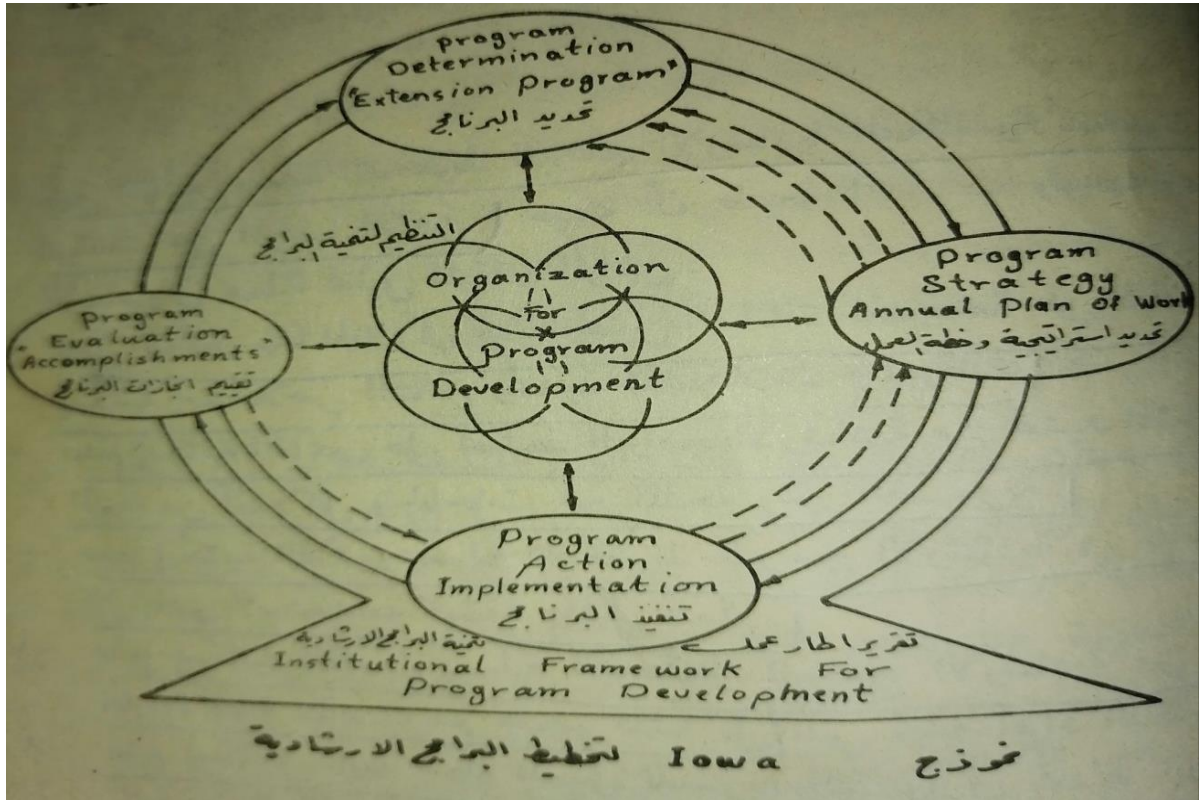 Program
Determination
"Extension Program"
تحديد البرنامج
التنظيم لتنمية البرامج
Organization
For
Program
Development
Program
Strategy
Annual Plan Of Work
تحديد استراتيجية وخطة العمل
Program
Evaluation
"Accomplishments"
تقييم انجازات البرنامج
Program
Action
Implementation
تنفيذ البرنامج
تقرير اطار عمل تنمية البرامج الارشادية
Institutional Framework For
Program Development
نموذج Iowa لتخطيط البرامج الارشادية